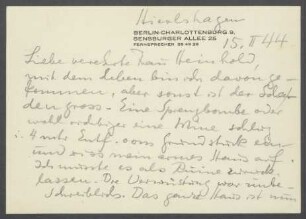 BERLIN-CHARLOTTENBURG 9,
SENSBURGER ALLEE 26
FERNSPRECHER 99 49 26
15. II 44
Liebe verehrte Frau Reinhold,
mit dem Leben bin ich davon ge-
kommen, aber sonst ist der Scha-
den gross. Eine Sprengbombe oder
wohl richtiger eine Mine schlug
i. 4 mtr Entf. vom Grundstück ein
und es mein armes Haus auf.
Ich musste es als Ruine zurück
lassen. Die Verwüstung war unbe-
schreiblich. Das ganze Haus ist nun